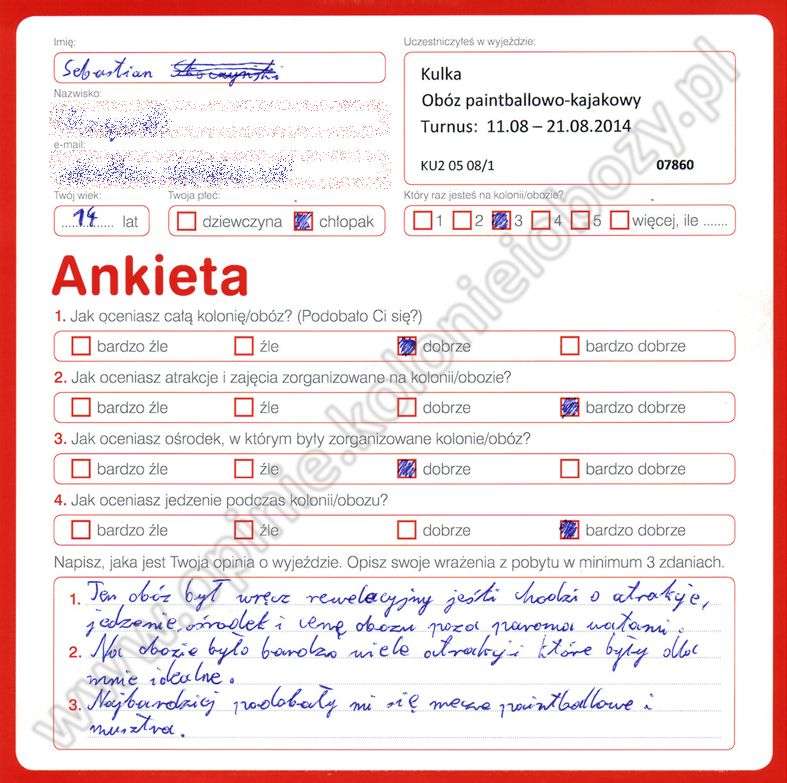 Imię:
Sebastian
Nazwisko:
e-mail:
Twój wiek:
14 lat
Twoja płeć:
dziewczyna chłopak
Uczestniczyłeś w wyjeździe:
Kulka
Obóz paintballowo-kajakowy
Turnus: 11.08 – 21.08.2014
KU2 05 08/1 07860
Który raz jesteś na kolonii/obozie?
1 2 3 4 5 więcej, ile .......
Ankieta
1. Jak oceniasz całą kolonię/obóz? (Podobało Ci się?)
bardzo źle źle dobrze bardzo dobrze
2. Jak oceniasz atrakcje i zajęcia zorganizowane na kolonii/obozie?
bardzo źle źle dobrze bardzo dobrze
3. Jak oceniasz ośrodek, w którym były zorganizowane kolonie/obóz?
bardzo źle źle dobrze bardzo dobrze
4. Jak oceniasz jedzenie podczas kolonii/obozu?
bardzo źle źle dobrze bardzo dobrze
Napisz, jaka jest Twoja opinia o wyjeździe. Opisz swoje wrażenia z pobytu w minimum 3 zdaniach.
1. Ten obóz był wręcz rewelacyjny jeśli chodzi o atrakcje,
jedzenie, ośrodek i cenę obozu poza paroma
2. Na obozie było bardzo wiele atrakcji które były dla
mnie idealne.
3. Najbardziej podobały mi się mecze paintballowe i
musztra.
www.opinie.kolonieiobozy.pl